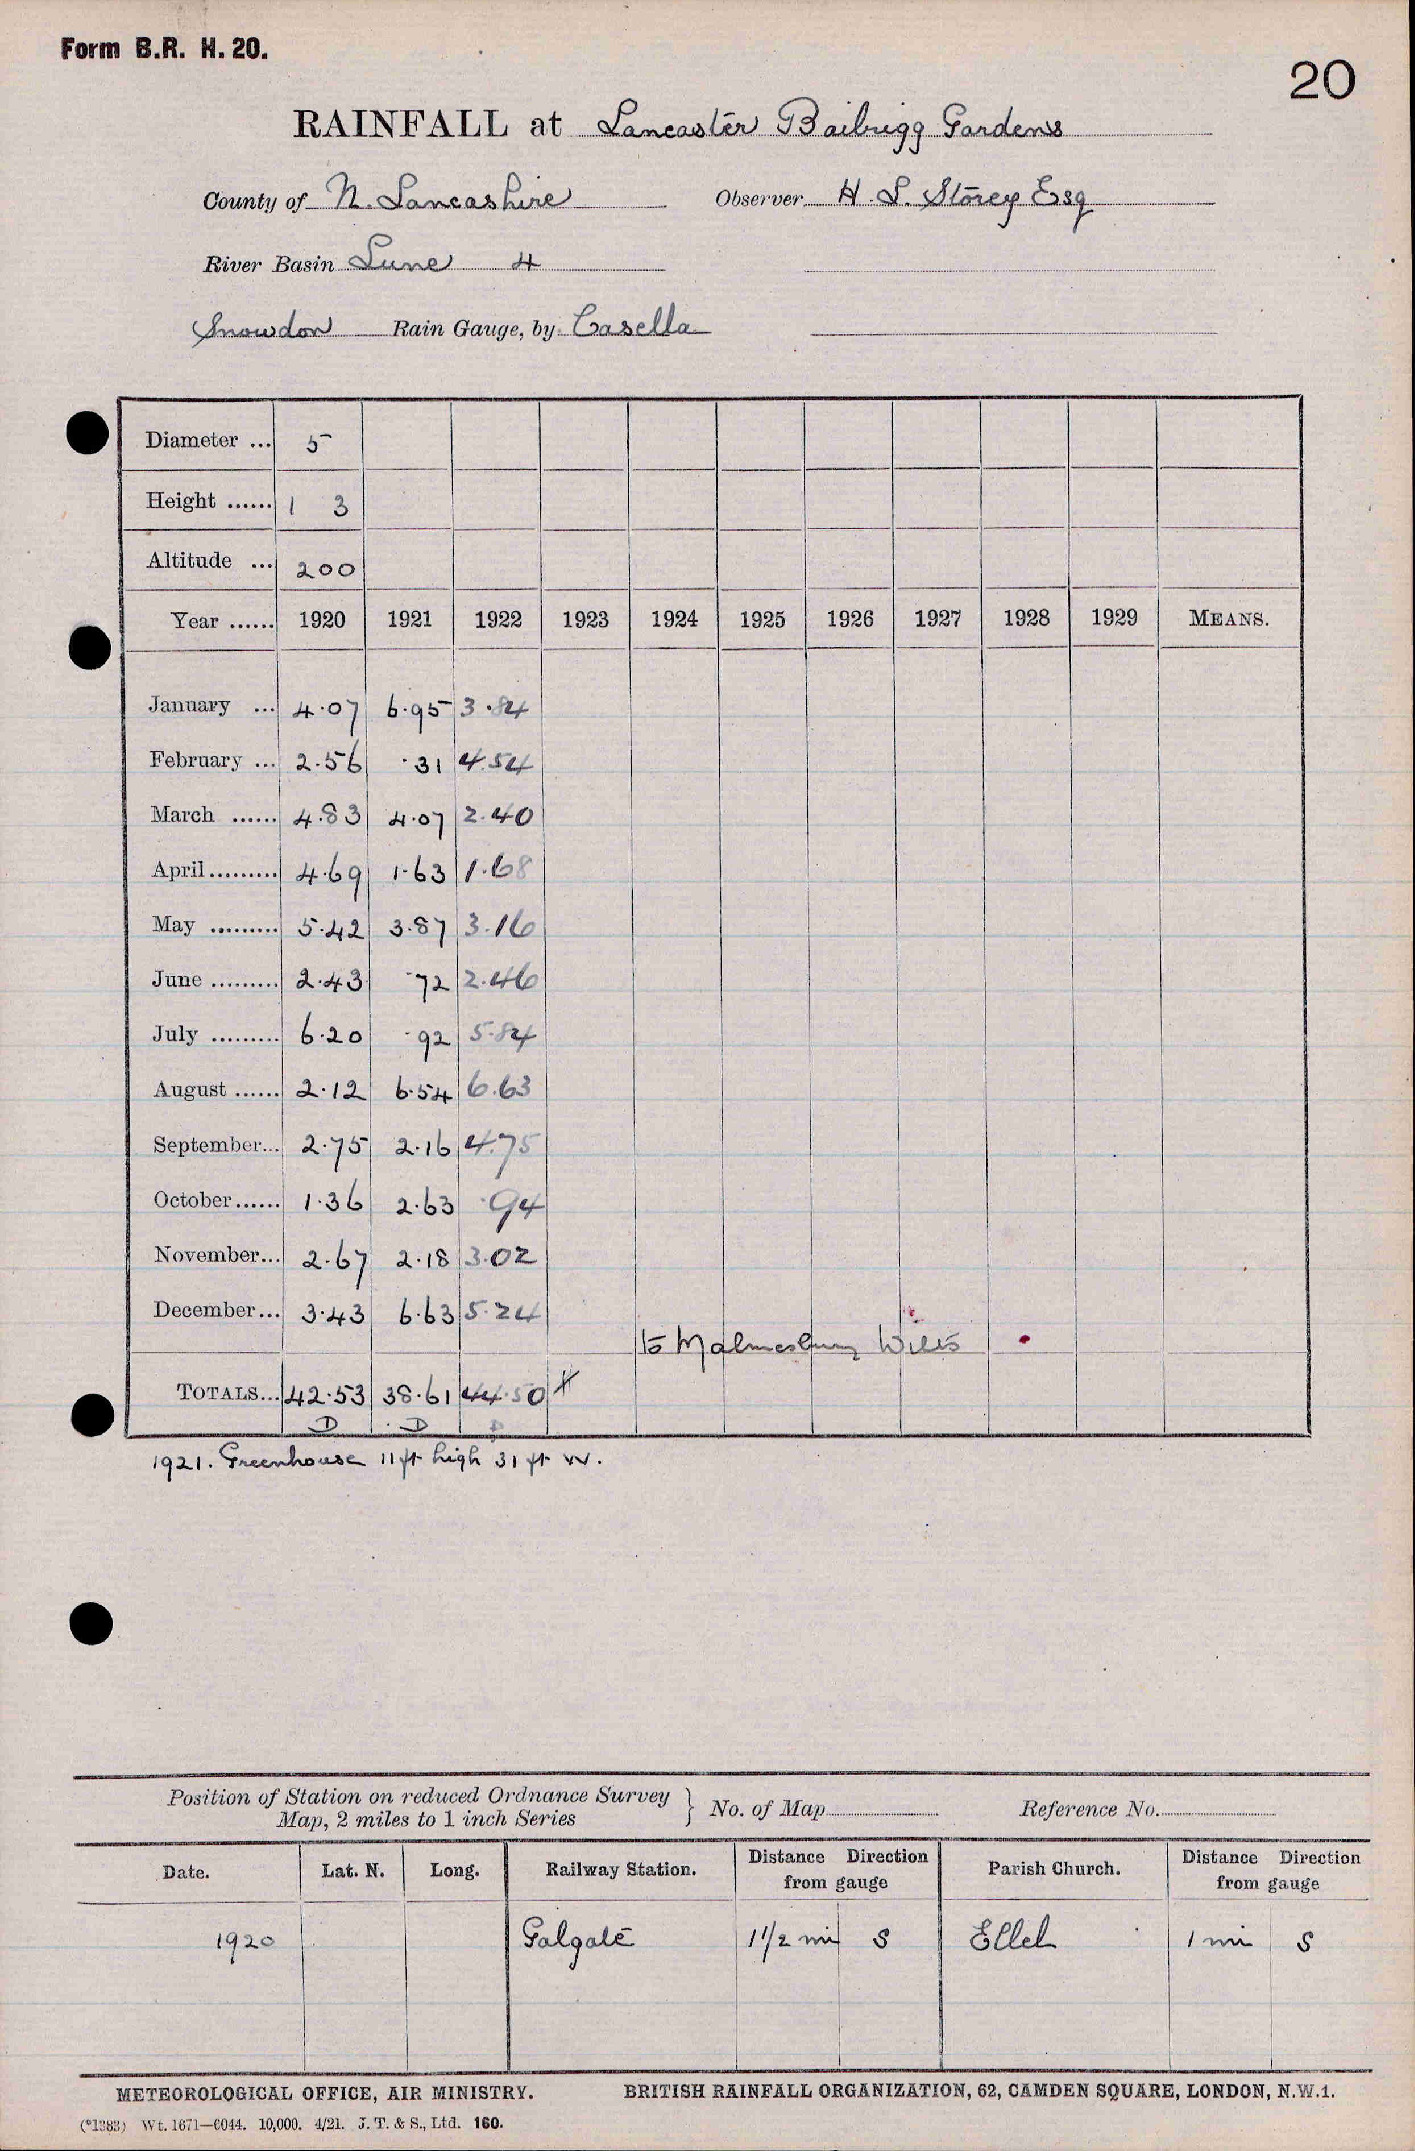 Form B.R. H. 20.
20
RAINFALL at Lancaster Bailrigg Gardens
County of N. Lancashire Observer H. L. Storey Esq
River Basin Lune 4
Snowdon Rain Gauge, by Casella
Diameter ... 5
Height ...... 1 3
Altitude ... 200
Year ...... 1920 1921 1922 1923 1924 1925 1926 1927 1928 1929 MEANS.
January ... 4.07 6.95 3.84
February ... 2.56 .31 4.54
March ...... 4.83 4.07 2.40
April......... 4.69 1.63 1.68
May ......... 5.42 3.87 3.16
June ......... 2.43 .72 2.46
July ......... 6.20 .92 5.84
August ...... 2.12 6.54 6.63
September... 2.75 2.16 4.75
October...... 1.36 2.63 .94
November... 2.67 2.18 3.02
December... 3.43 6.63 5.24
to Malmesbury Wilts
TOTALS... 42.53 38.61 44.50 X
D D D
1921. Greenhouse 11 ft high 31 ft W.
Position of Station on reduced Ordnance Survey Map, 2 miles to 1 inch Series } No. of Map Reference No.
Date. Lat. N. Long. Railway Station. Distance Direction from gauge Parish Church. Distance Direction from gauge
1920 Galgate 1 1/2 mi S Ellel 1 mi S
METEOROLOGICAL OFFICE, AIR MINISTRY. BRITISH RAINFALL ORGANIZATION, 62, CAMDEN SQUARE, LONDON, N.W.1.
(*1383) Wt. 1671—6044. 10,000. 4/21. J. T. & S., Ltd. 160.